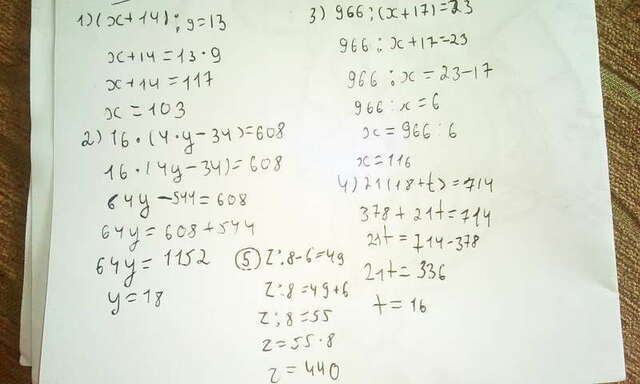 1) (x+14) : 9=13
x+14=13·9
x+14=117
x=103
2) 16·(4·y-34)=608
16·(4y-34)=608
64y-544=608
64y=608+544
64y=1152
y=18
3) 966:(x+17)=23
966:x+17=23
966:x=23-17
966:x=6
x=966:6
x=116
4) 21(18+t)=714
378+21t=714
21t=714-378
21t=336
t=16
5 z:8-6=49
z:8=49+6
z:8=55
z=55·8
z=440